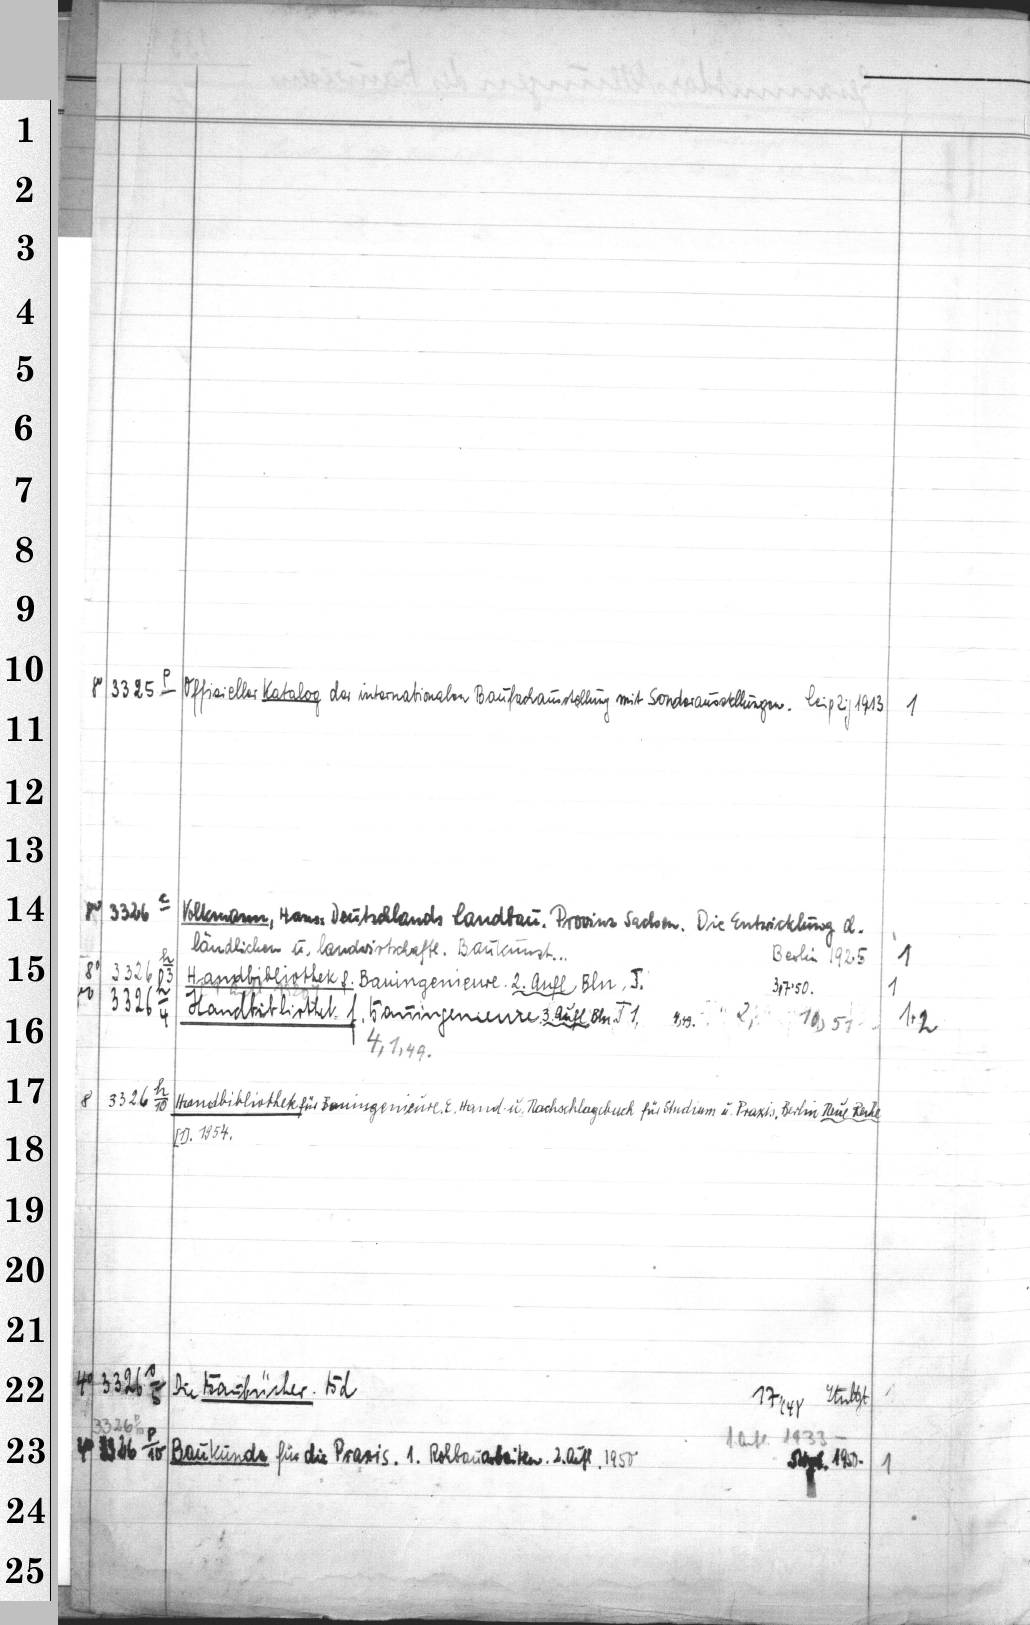 1
2
3
4
5
6
7
8
9
10
8° 3325 p Offizieller Katalog der internationalen Baufachausstellung mit Sonderausstellungen. Leipzig 1913 1
11
12
13
14
8° 3326 c Volkmann, Hans: Deutschlands Landbau. Provinz Sachsen. Die Entwicklung d.
ländlichen u. landwirtschaftl. Baukunst... Berlin 1925 1
15
8° 3326 h/3 Handbibliothek f. Bauingenieure. 2. Aufl. Bln, I. 3,7.50. 1
8° 3326 h/4 Handbibliothek f. Bauingenieure 3. Aufl Bln I 1, 2, 10, 51 1+2
16
4,1,49.
17
8 3326 h/10 Handbibliothek für Bauingenieure. E. Hand- u. Nachschlagebuch für Studium u. Praxis. Berlin Neue Reihe
[1]. 1954.
18
19
20
21
22
4° 3326 Die Baubücher. Bd 17, Stuttgt
3326 1. Aufl. 1933-
23
4° 3326 p/10 Baukunde für die Praxis. 1. Rohbauarbeiten. 2. Aufl. 1950 Stuttg. 1950- 1
24
25